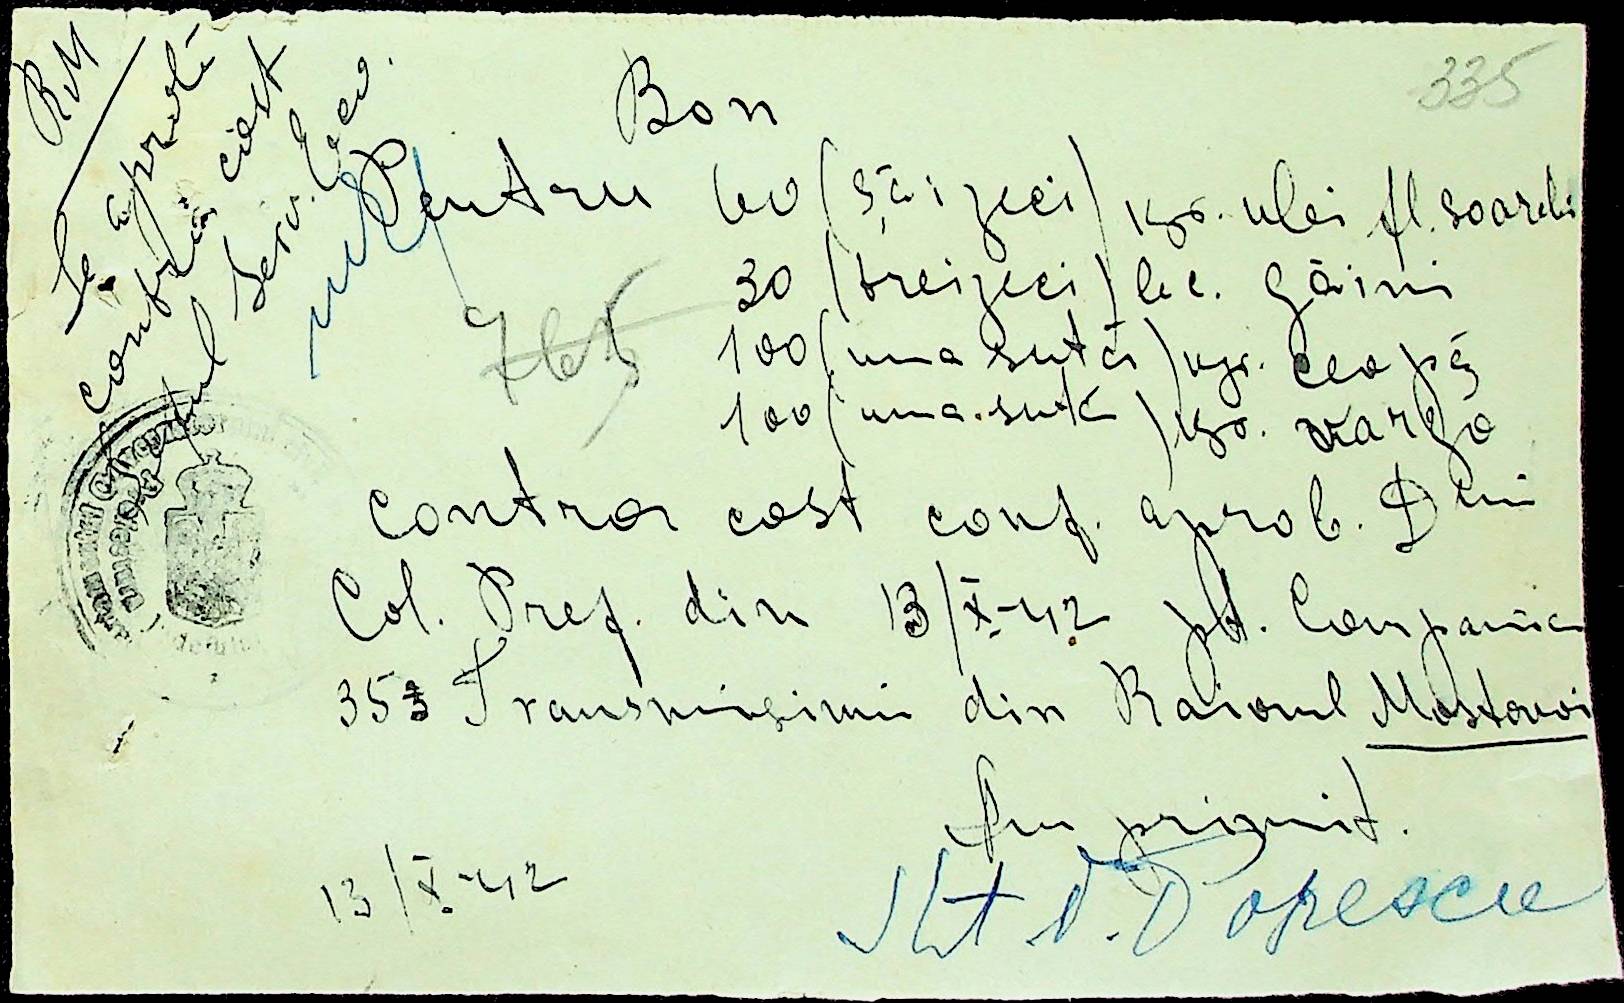 335
RM
Se aprobă
contra cost
Șeful Serv. Econ.
Bon
Pentru 60 (șaizeci) kgr. ulei fl. soarelui
30 (treizeci) buc. găini
100 (una sută) kgr. ceapă
100 (una sută) kgr. varză
765
contra cost conf. aprob. Dlui
Col. Pref. din 13/X-42 pt. Compania
353 Transmisiuni din Raionul Mostovoi
Am primit.
13/X-42
Slt D. Popescu